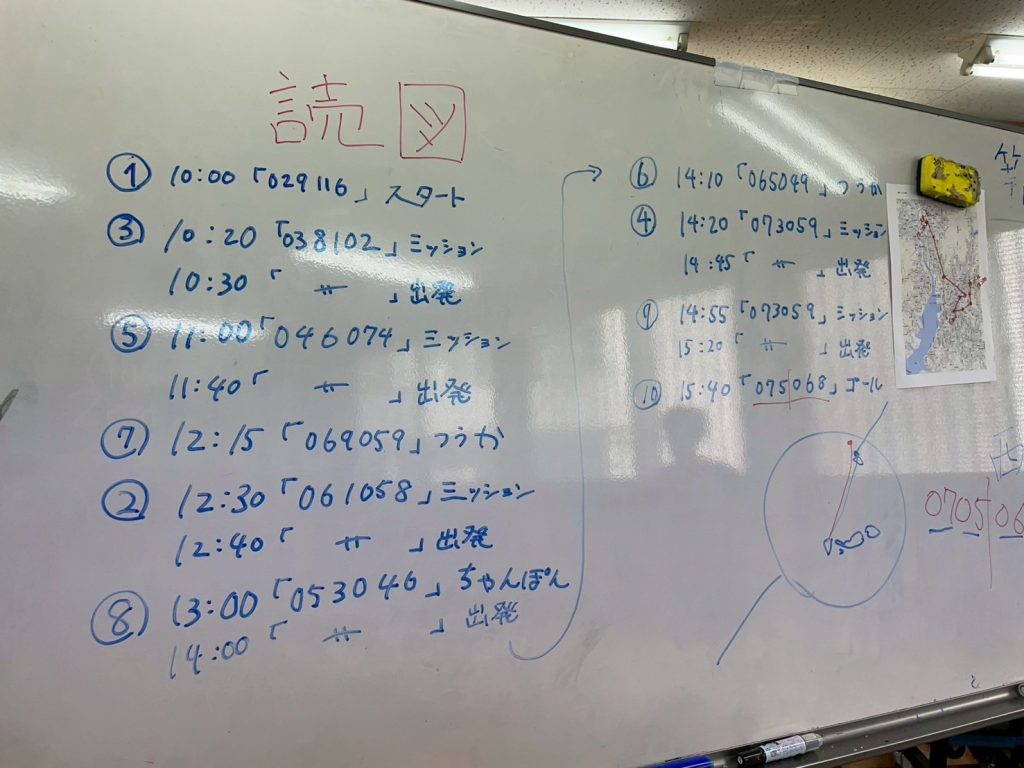 読図
① 10:00「029116」スタート
③ 10:20「038102」ミッション
10:30「 〃 」出発
⑤ 11:00「046074」ミッション
11:40「 〃 」出発
⑦ 12:15「069059」つうか
② 12:30「061058」ミッション
12:40「 〃 」出発
⑧ 13:00「053046」ちゃんぽん
14:00「 〃 」出発
⑥ 14:10「065049」つうか
④ 14:20「073059」ミッション
14:45「 〃 」出発
⑨ 14:55「073059」ミッション
15:20「 〃 」出発
⑩ 15:40「075068」ゴール
0705 06